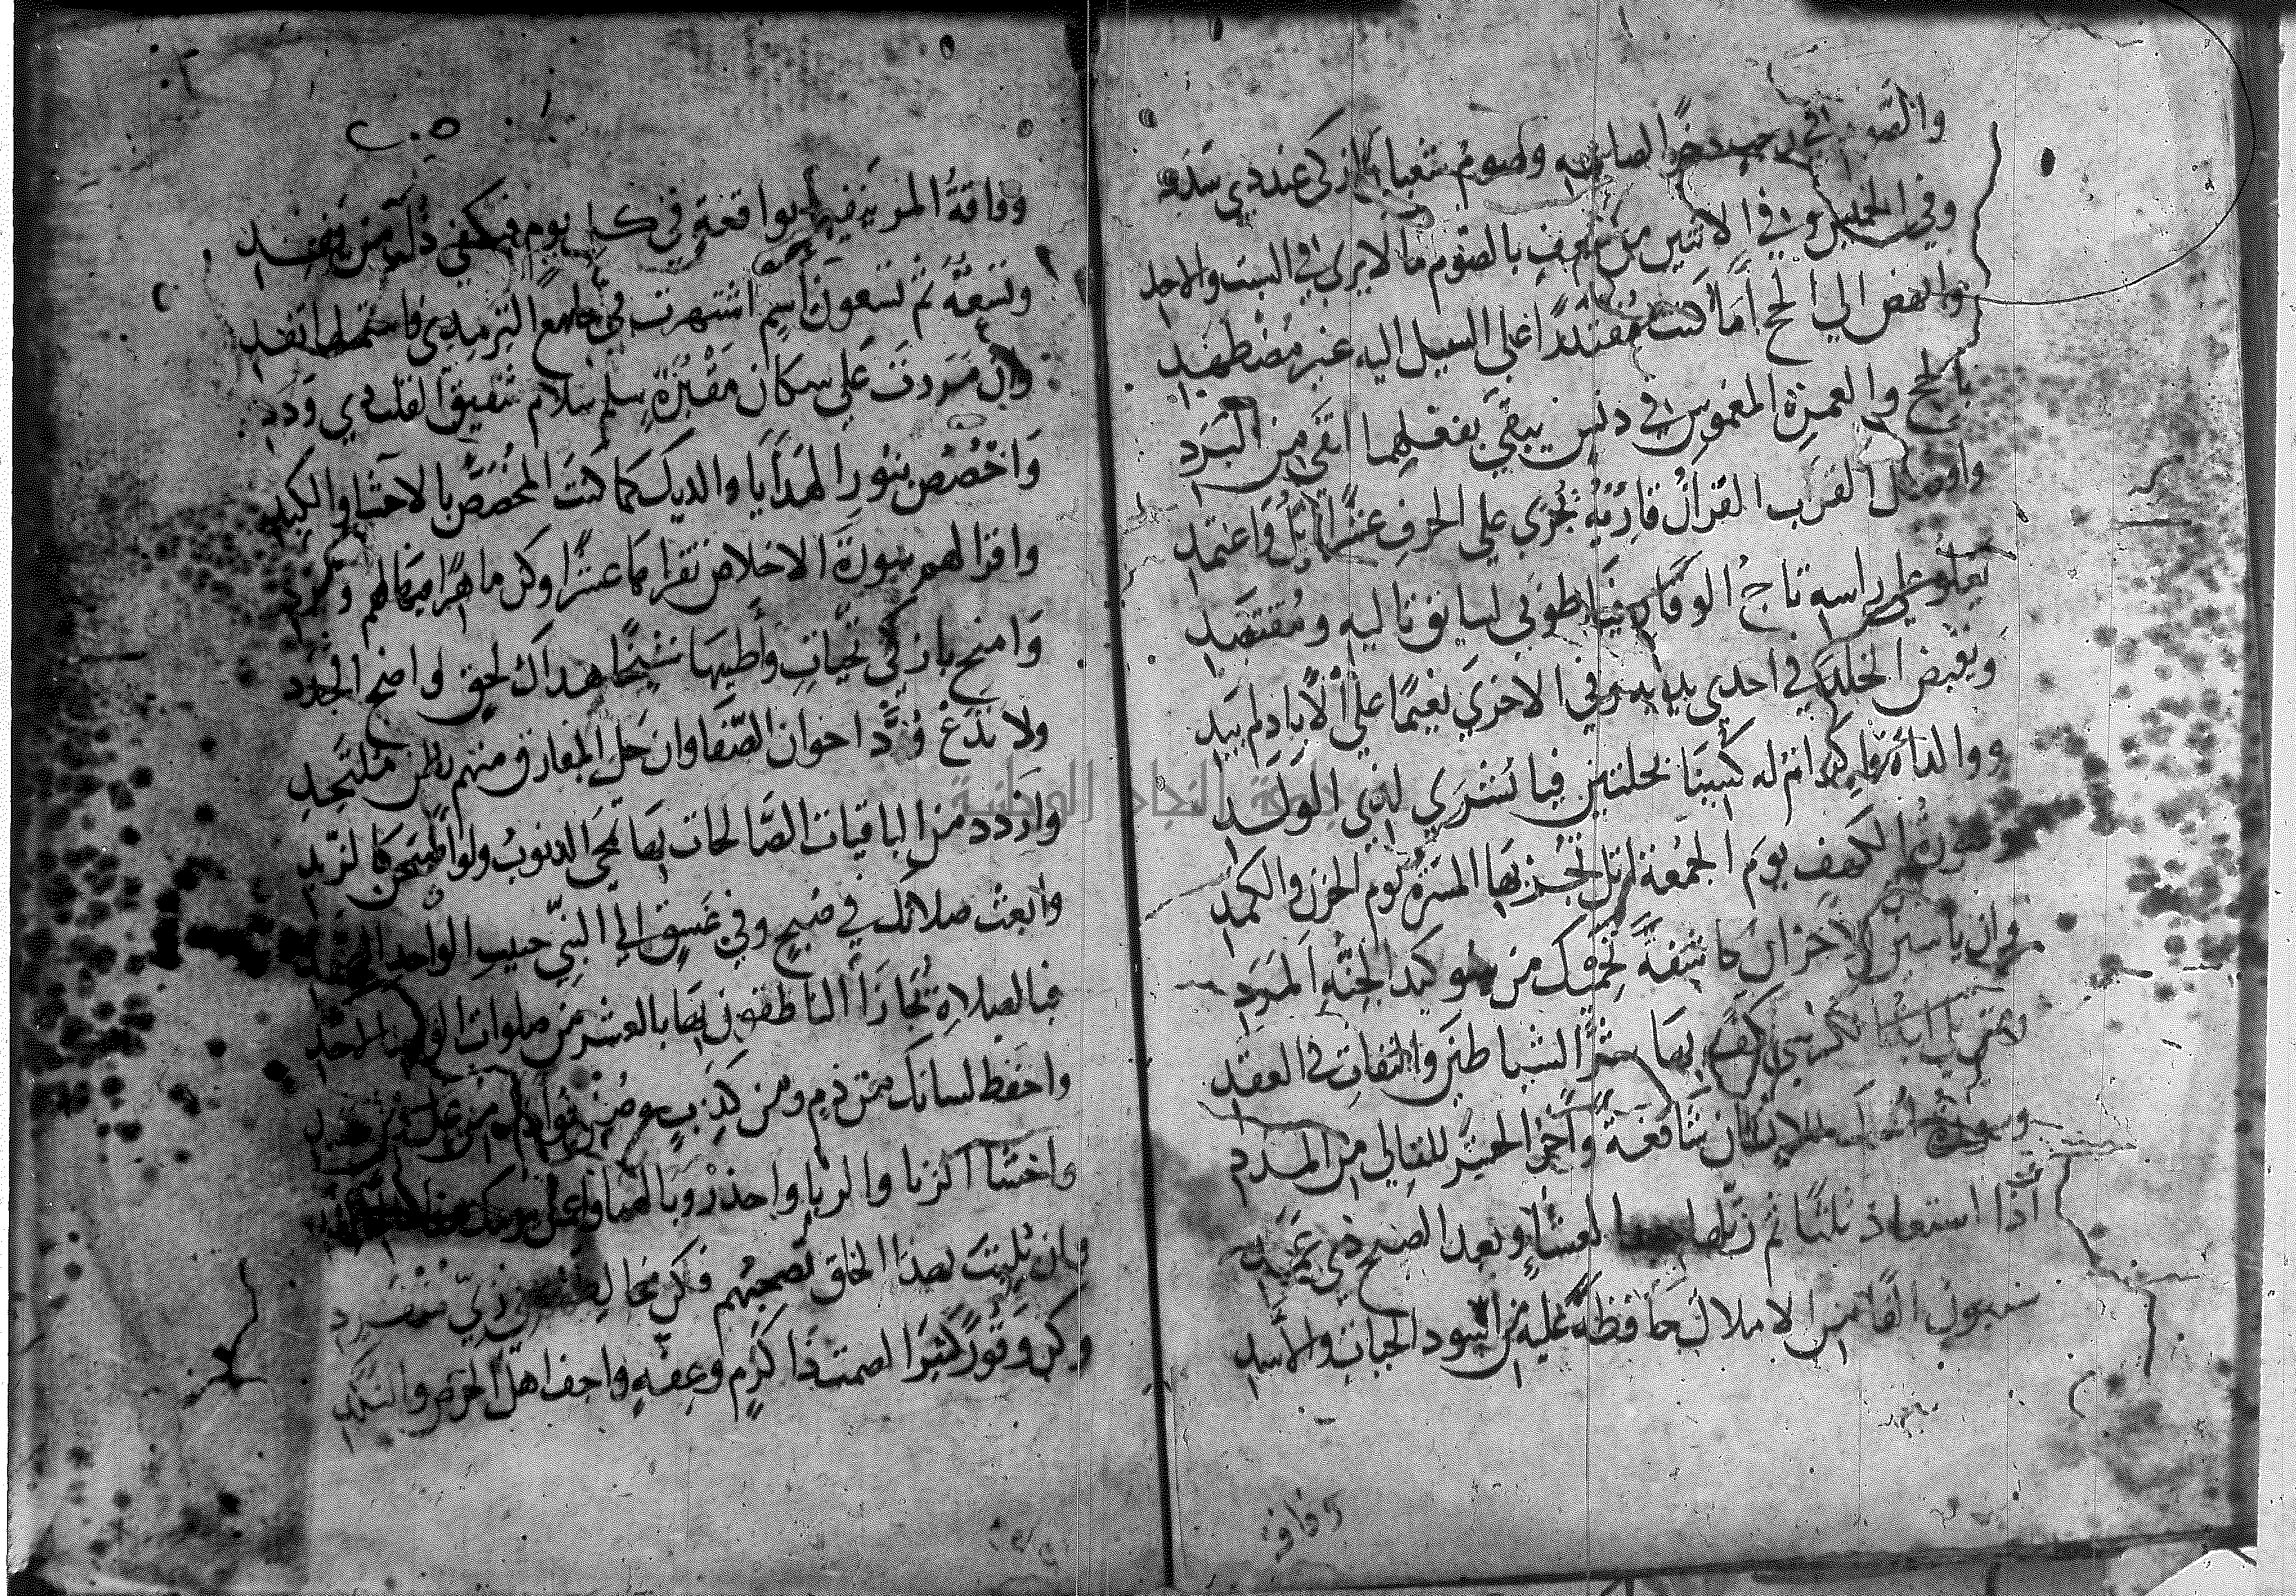 والصوم في رجب ذخرا لصايمه وصوم شعبان ازكى عندي سند
وفي الخميس وفي الاثنين من شرف بالصوم ما لا يرى في السبت والاحد
وانهض الى الحج اما كنت مقتدرا على السبيل اليه غير مضطهد
بالحج والعمرة المغموس في دنس يبقى بفعلهما انقى من البرد
وافضل القرب القران قارئه يجزى على الحرف عشرا فاتل واعتمد
يعلو على راسه تاج الوقار فيا طوبى لسابق تاليه ومقتصد
ويقبض الخلد في احدى يديه وفي الاخرى نعيما على الاباد لم يبد
ووالداه كسيتا بحلتين فيا بشرى لذي الولد
وسورة الكهف يوم الجمعة اتل تجز بها المسرة يوم الحزن والكمد
وان ياسين للاحزان كاشفة تحميك من سو كيد الجنة المرد
باية الكرسي بها شر الشياطين والنفاث في العقد
للانسان شافعة واخر الحشر للتالي من المدد
اذا استعاذ ثلثا ثم رتلها العشا وبعد الصبح
سبعون الفا من الاملاك حافظة عليه من اسود الجبان والاسد
وفاقة المرء ينفيها بواقعة في كل يوم فيكفي ذلة من
وتسعة ثم تسعون اسم اشتهرت في جامع الترمذي فاستملها تفد
وان مررت على سكان مقبرة سلم سلام شفيق القلب ذي ودد
واخصص بنور الهدايا والديك كما كنت المخصص بالاحشا والكبد
واقرا لهم سورة الاخلاص تقراها عشرا وكن ماهرا فيها لهم وزد
وامنح بازكى تحيات واطيبها شيخا هداك لحق واضح الجدد
ولا تدع ود اخوان الصفا وان حل المفارق منهم بطن ملتحد
وازدد من الباقيات الصالحات بها تمحى الذنوب ولو اضحت كالزبد
وابعث صلاتك في صبح وفي غسق الى النبي حبيب الواحد الصمد
فبالصلاة تجازا الناطقون بها بالعشر من صلوات الواحد الاحد
واحفظ لسانك من ذم ومن كذب وصن فوادك من غل ومن حسد
واخش الزنا والربا واحذر وبالهما واعمل
وان بليت بهذا الخلق تصحبهم فكن في زي منفرد
وكن وقورا كثير الصمت ذا كرم وعفة واجف اهل الحرص والنكد
وفاقة
جامعة النجاح الوطنية